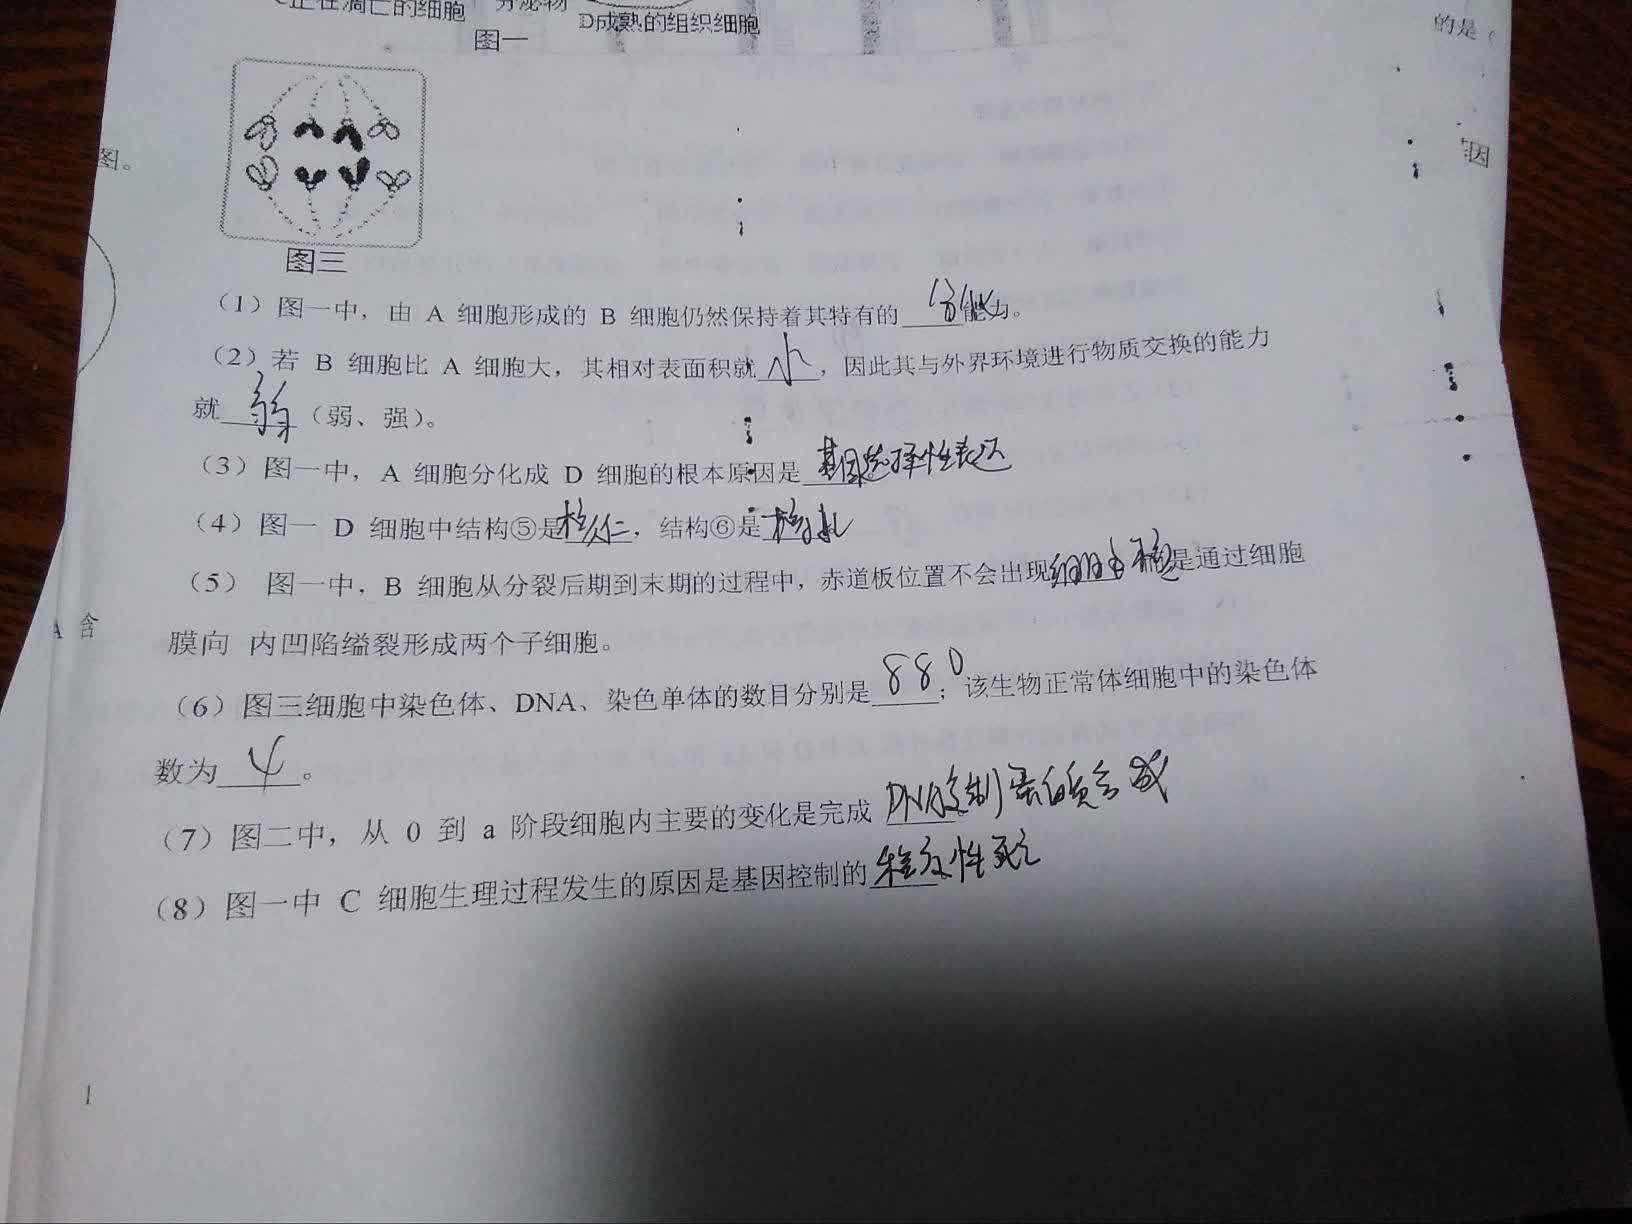 C正在凋亡的细胞 分泌物
D成熟的组织细胞
图一
的是（
图。
因
图三
（1）图一中，由 A 细胞形成的 B 细胞仍然保持着其特有的 分化 能力。
（2）若 B 细胞比 A 细胞大，其相对表面积就 小 ，因此其与外界环境进行物质交换的能力
就 弱 （弱、强）。
（3）图一中，A 细胞分化成 D 细胞的根本原因是 基因选择性表达
（4）图一 D 细胞中结构⑤是核仁，结构⑥是核孔
（5） 图一中，B 细胞从分裂后期到末期的过程中，赤道板位置不会出现细胞板是通过细胞
A 含
膜向 内凹陷缢裂形成两个子细胞。
（6）图三细胞中染色体、DNA、染色单体的数目分别是 8 8 0 ；该生物正常体细胞中的染色体
数为 4 。
（7）图二中，从 0 到 a 阶段细胞内主要的变化是完成 DNA复制 蛋白质合成
（8）图一中 C 细胞生理过程发生的原因是基因控制的 程序性死亡
1